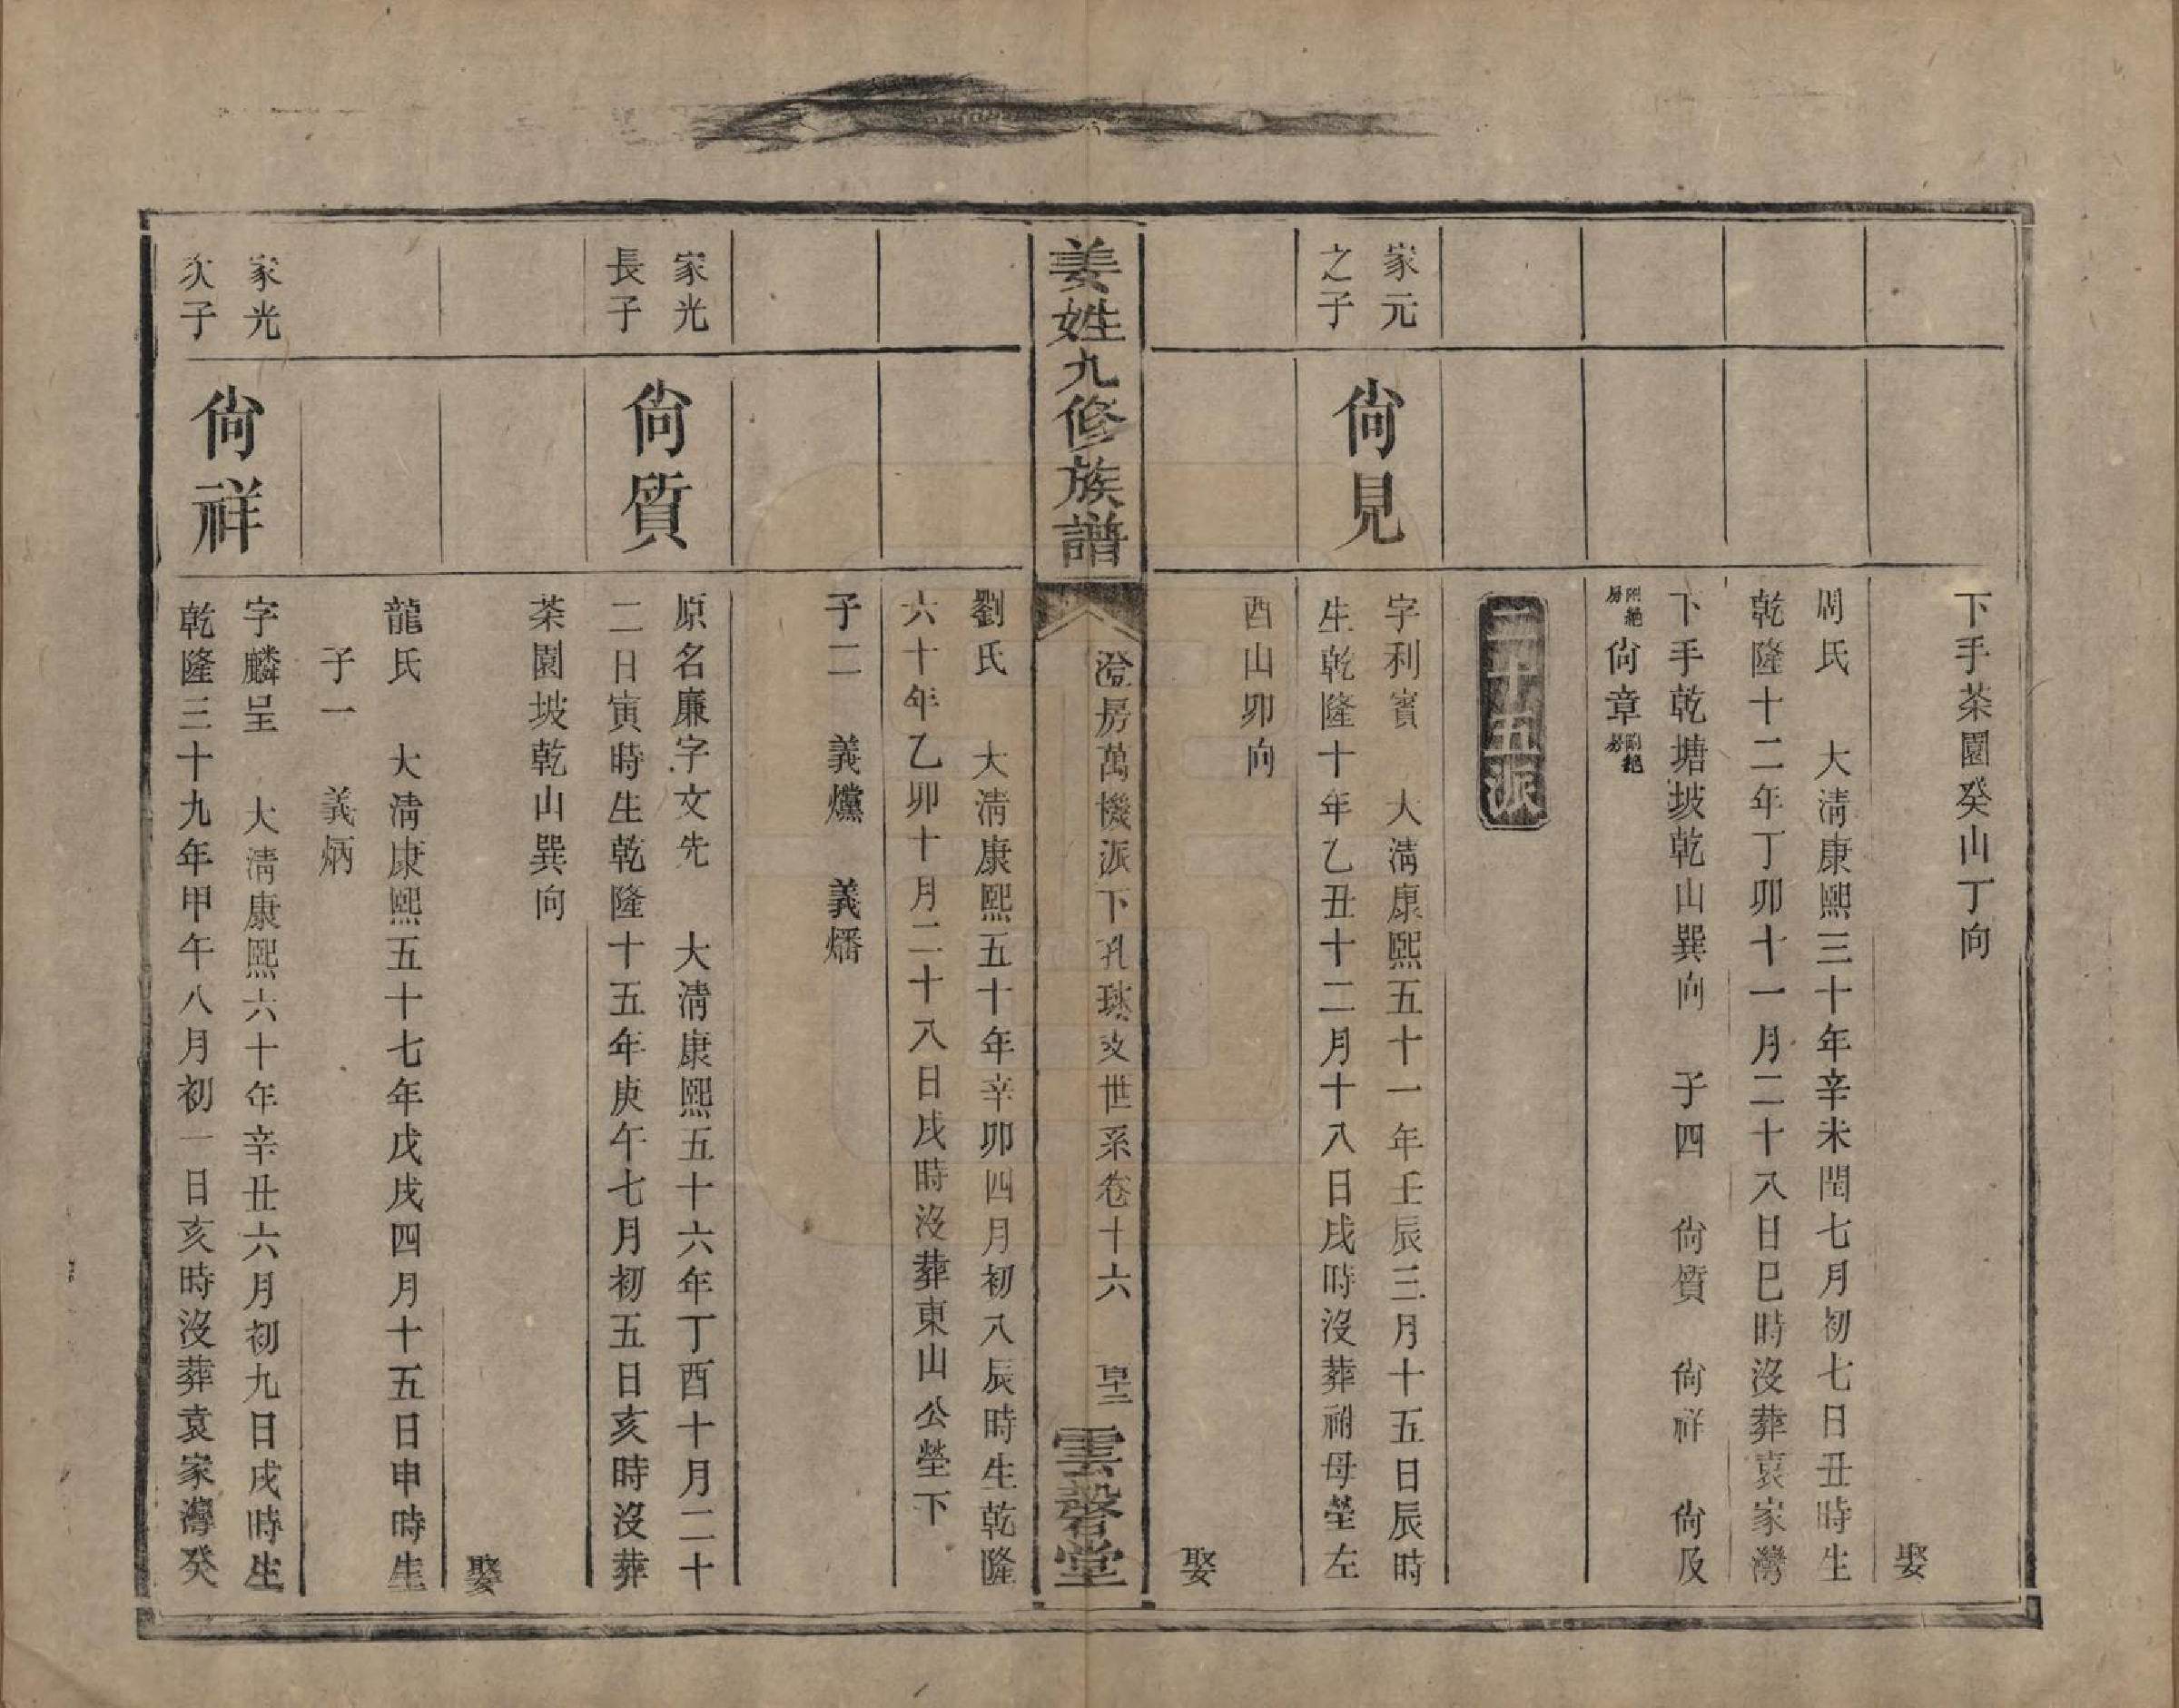 下手茶園癸山丁向
娶
周氏 大淸康熙三十年辛未閏七月初七日丑時生
乾隆十二年丁卯十一月二十八日巳時沒葬袁家灣
下手乾塘坡乾山巽向 子四 尙質 尙祥 尙及
附絕房 尙章 附絕房
二十五派
家元
之子
尙見
字利賓 大淸康熙五十一年壬辰三月十五日辰時
生乾隆十年乙丑十二月十八日戌時沒葬祔母塋左
酉山卯向
娶
姜姓九修族譜
澄房萬機派下孔球支世系卷十六
雲磬堂
劉氏 大淸康熙五十年辛卯四月初八辰時生乾隆
六十年乙卯十月二十八日戌時沒葬東山公塋下
子二 義爣 義燔
家光
長子
尙質
原名廉字文先 大淸康熙五十六年丁酉十月二十
二日寅時生乾隆十五年庚午七月初五日亥時沒葬
茶園坡乾山巽向
娶
龍氏 大淸康熙五十七年戊戌四月十五日申時生
子一 義炳
家光
次子
尙祥
字麟呈 大淸康熙六十年辛丑六月初九日戌時生
乾隆三十九年甲午八月初一日亥時沒葬袁家灣癸